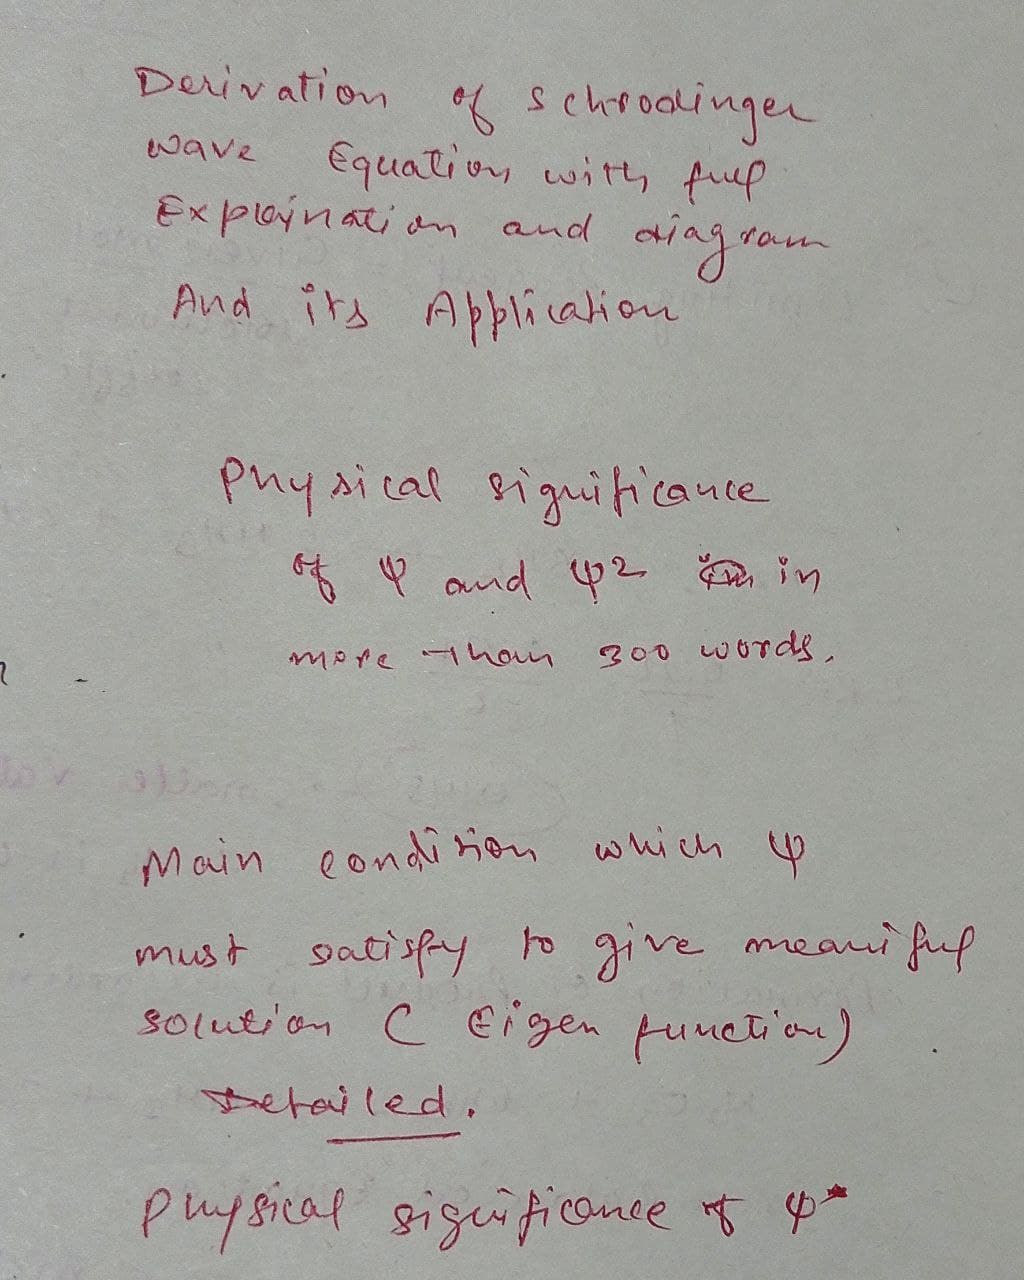 Derivation of schroodinger
wave Equation with full
Explaination and diagram
And its Application
Physical significance
of ψ and ψ2 in
more than 300 words.
Main condition which ψ
must satisfy to give meaniful
solution ( Eigen function)
Detailed.
Physical significance of ψ*